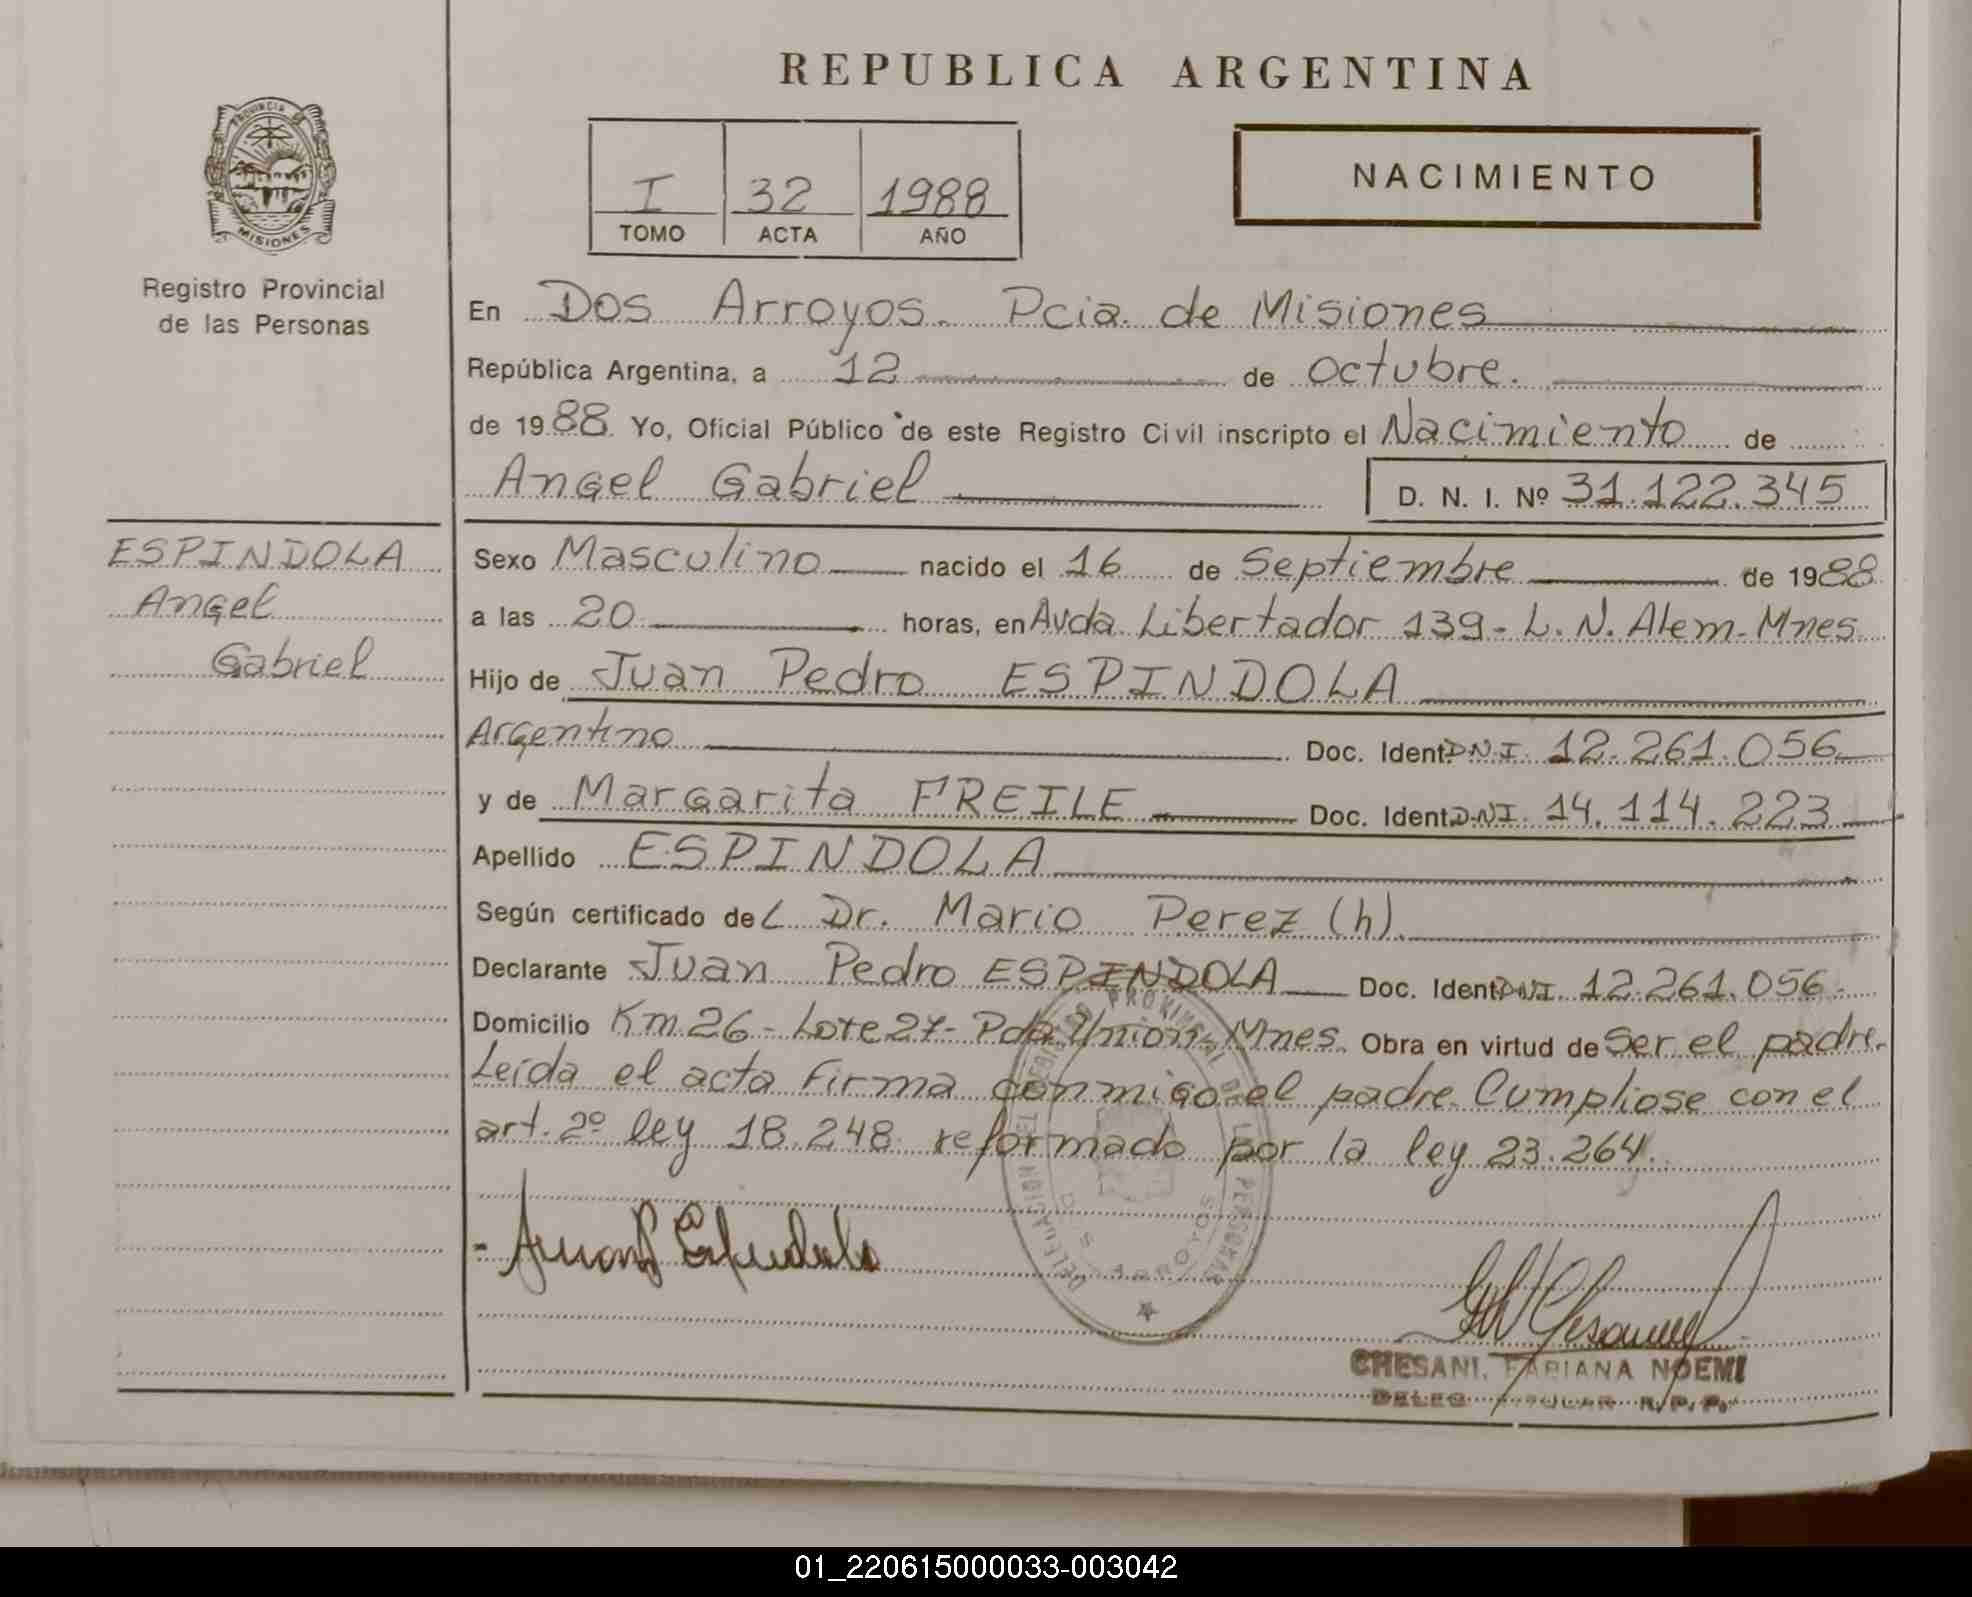 REPUBLICA ARGENTINA
PROVINCIA
MISIONES
Registro Provincial
de las Personas
I 32 1988
TOMO ACTA AÑO
NACIMIENTO
En Dos Arroyos. Pcia. de Misiones
República Argentina, a 12 de octubre.
de 1988. Yo, Oficial Público de este Registro Civil inscripto el Nacimiento de
Angel Gabriel D. N. I. Nº 31.122.345
ESPINDOLA
Angel
Gabriel
Sexo Masculino nacido el 16 de Septiembre de 1988
a las 20 horas, en Avda. Libertador 139- L. N. Alem- Mnes
Hijo de Juan Pedro ESPINDOLA
Argentino Doc. Ident. D.N.I. 12.261.056
y de Margarita FREILE Doc. Ident. D.N.I. 14.114.223
Apellido ESPINDOLA
Según certificado del Dr. Mario Perez (h).
Declarante Juan Pedro ESPINDOLA Doc. Ident. DNI. 12.261.056-
Domicilio Km 26- Lote 27- Pda. Unión- Mnes. Obra en virtud de Ser el padre.
Leída el acta firma conmigo el padre. Cumpliose con el
art. 2º ley 18.248 reformado por la ley 23.264.
DELEGACION DEL REGISTRO PROVINCIAL DE LAS PERSONAS
DOS ARROYOS
CHESANI, FABIANA NOEMI
DELEG TITULAR R.P.P.
01_220615000033-003042